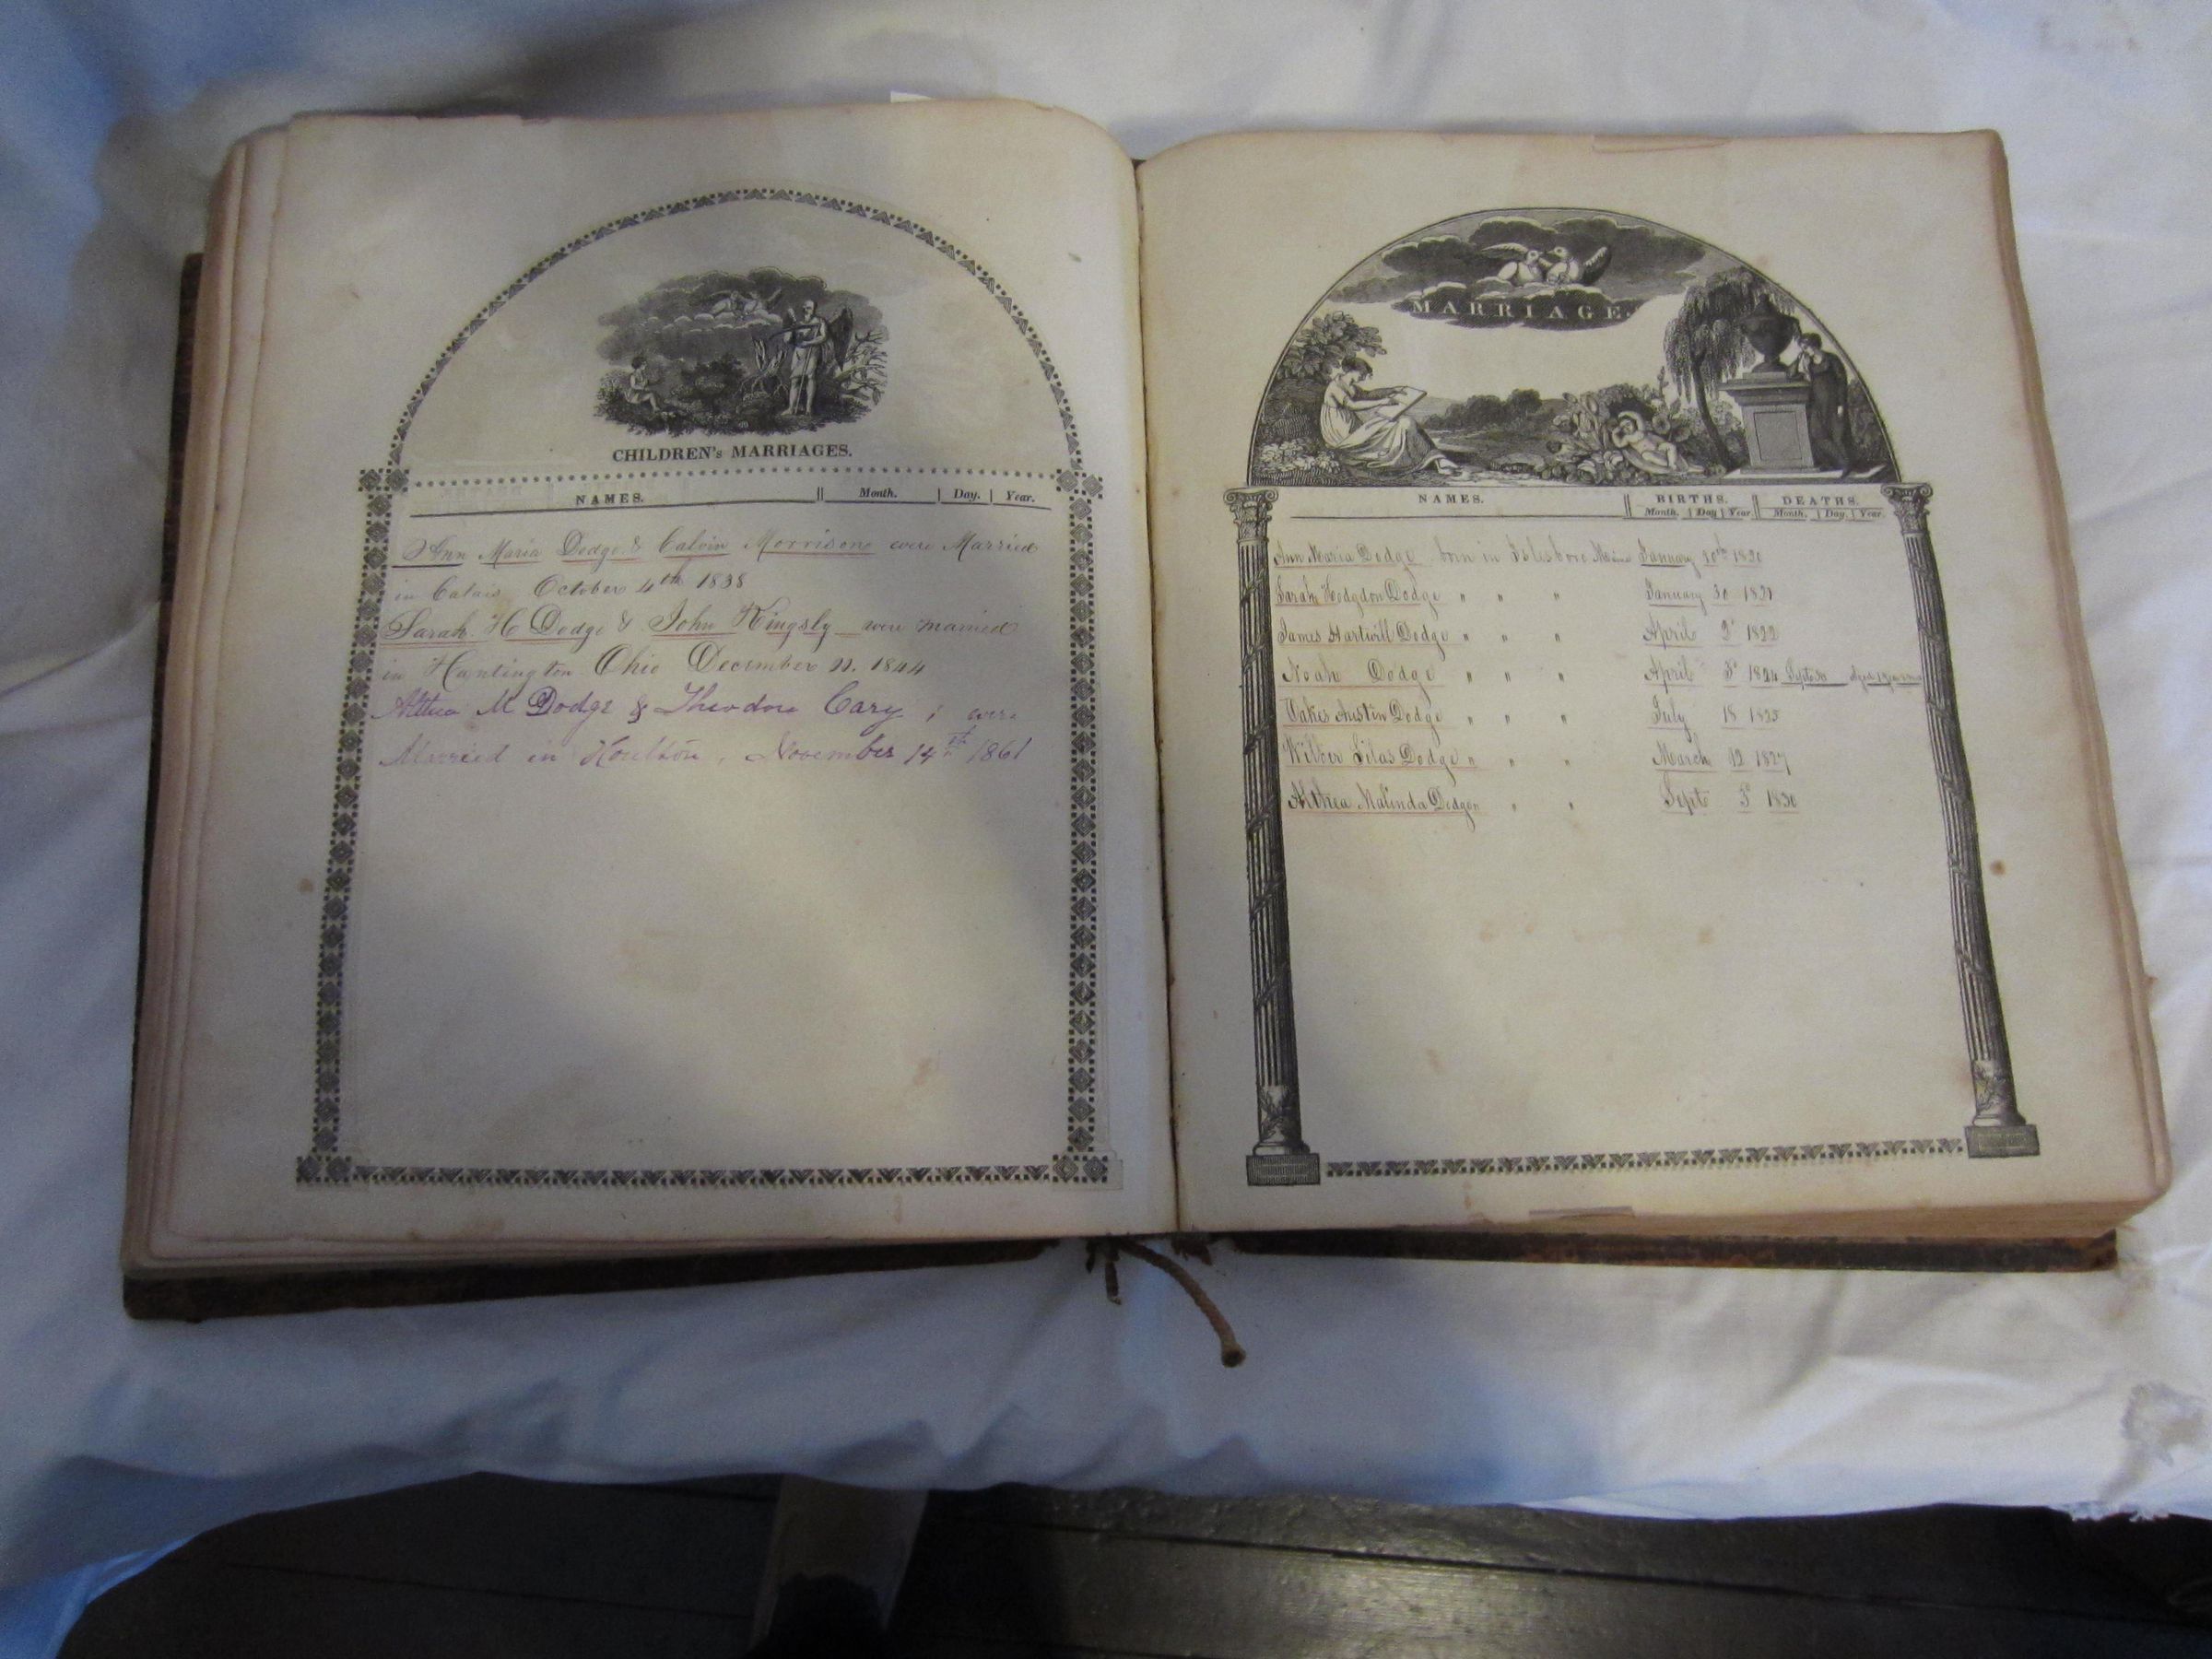 CHILDREN's MARRIAGES.
NAMES. Month. Day. Year.
Ann Maria Dodge & Calvin Morrison were Married
in Calais October 4th 1838
Sarah H Dodge & John Kingsly were married
in Huntington Ohio December 11. 1844
Althea M Dodge & Theodore Cary ; were
Married in Houlton, November 14th 1861
MARRIAGE.
NAMES. BIRTHS. DEATHS.
Month. Day Year Month. Day. Year.
Ann Maria Dodge born in Islesboro Maine January 10th 1820
Sarah Hodgdon Dodge " " " January 30 1821
James Hartwill Dodge " " " April 2d 1822
Noah Dodge " " " April 3d 1824 Sept 30 Aged 1
Oakes Austin Dodge " " " July 18 1825
Wilber Silas Dodge " " " March 12 1827
Althea Malinda Dodge " " " Sept 3d 1830